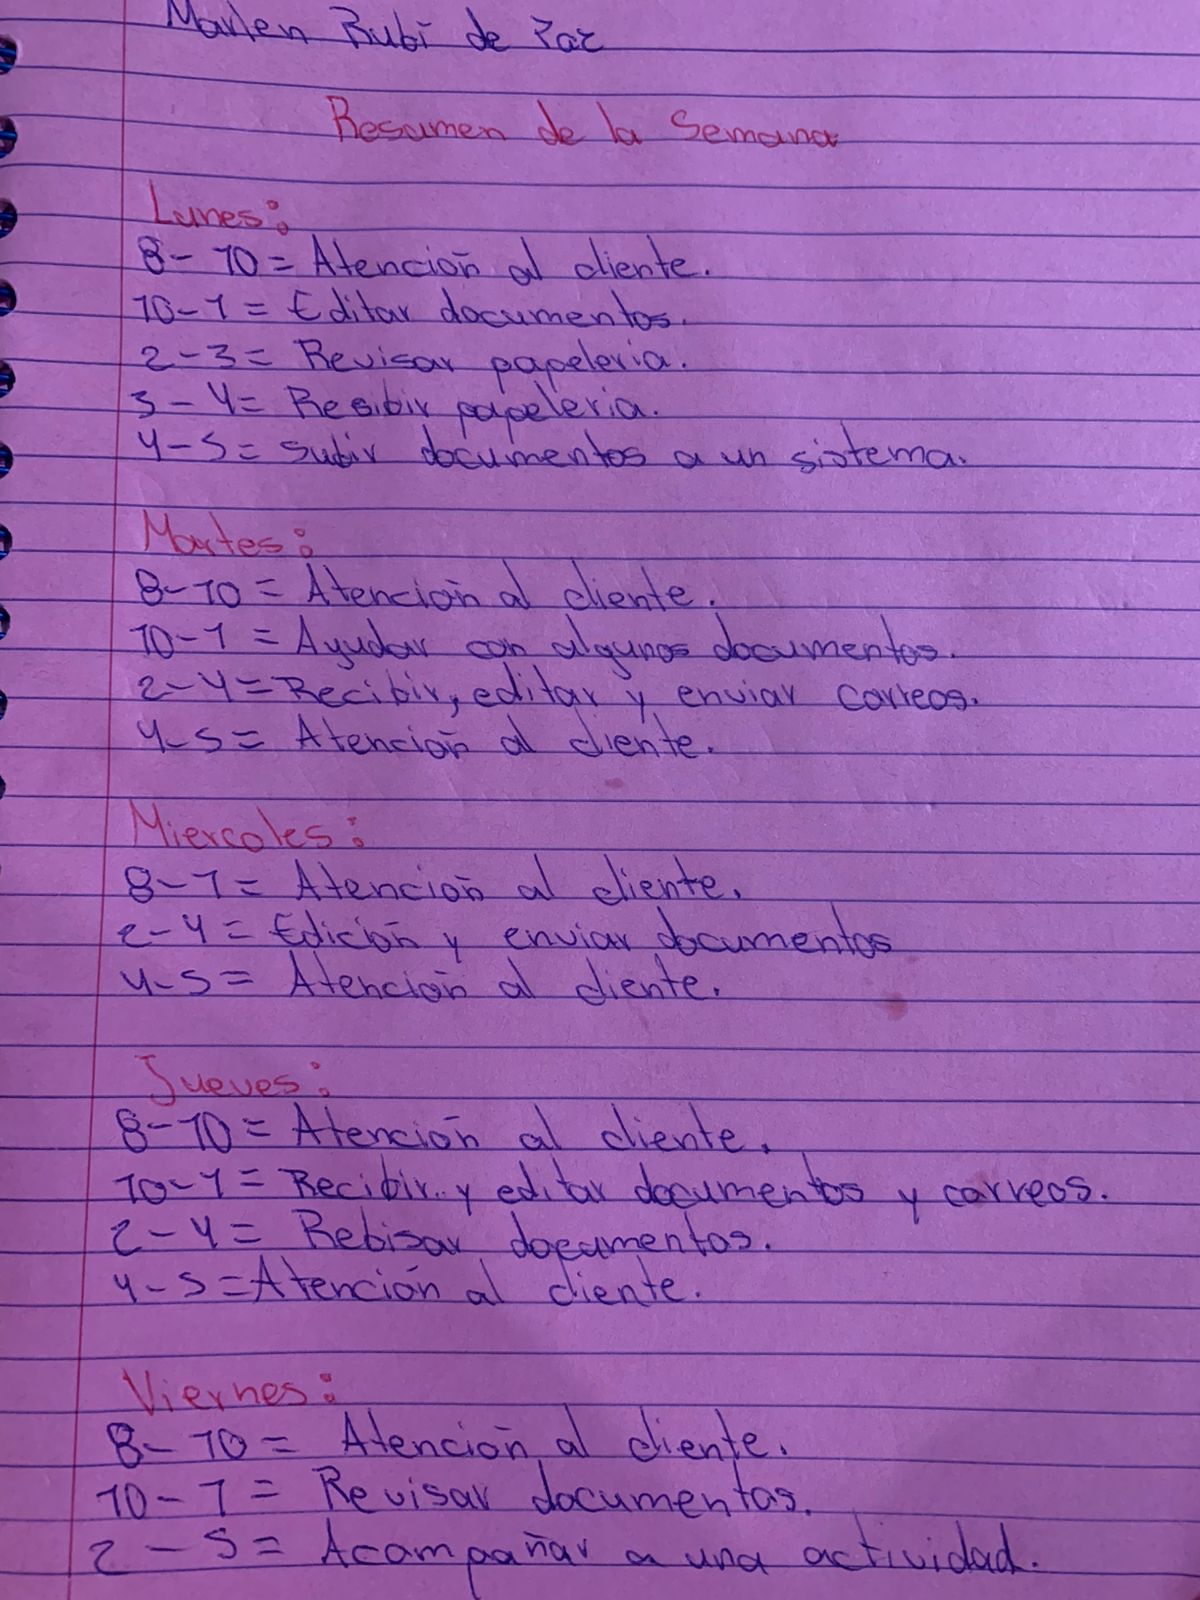 Marlen Rubí de Paz
Resumen de la Semana
Lunes:
8-10= Atención al cliente.
10-1= Editar documentos.
2-3= Revisar papeleria.
3-4= Resibir papeleria.
4-5= subir documentos a un sistema.
Martes:
8-10= Atención al cliente.
10-1= Ayudar con algunos documentos.
2-4= Recibir, editar y enviar correos.
4-5= Atención al cliente.
Miercoles:
8-1= Atención al cliente.
2-4= Edición y enviar documentos
4-5= Atención al cliente.
Jueves:
8-10= Atención al cliente.
10-1= Recibir y editar documentos y correos.
2-4= Rebisar documentos.
4-5=Atención al cliente.
Viernes:
8-10= Atención al cliente.
10-1= Revisar documentos.
2-5= Acompañar a una actividad.